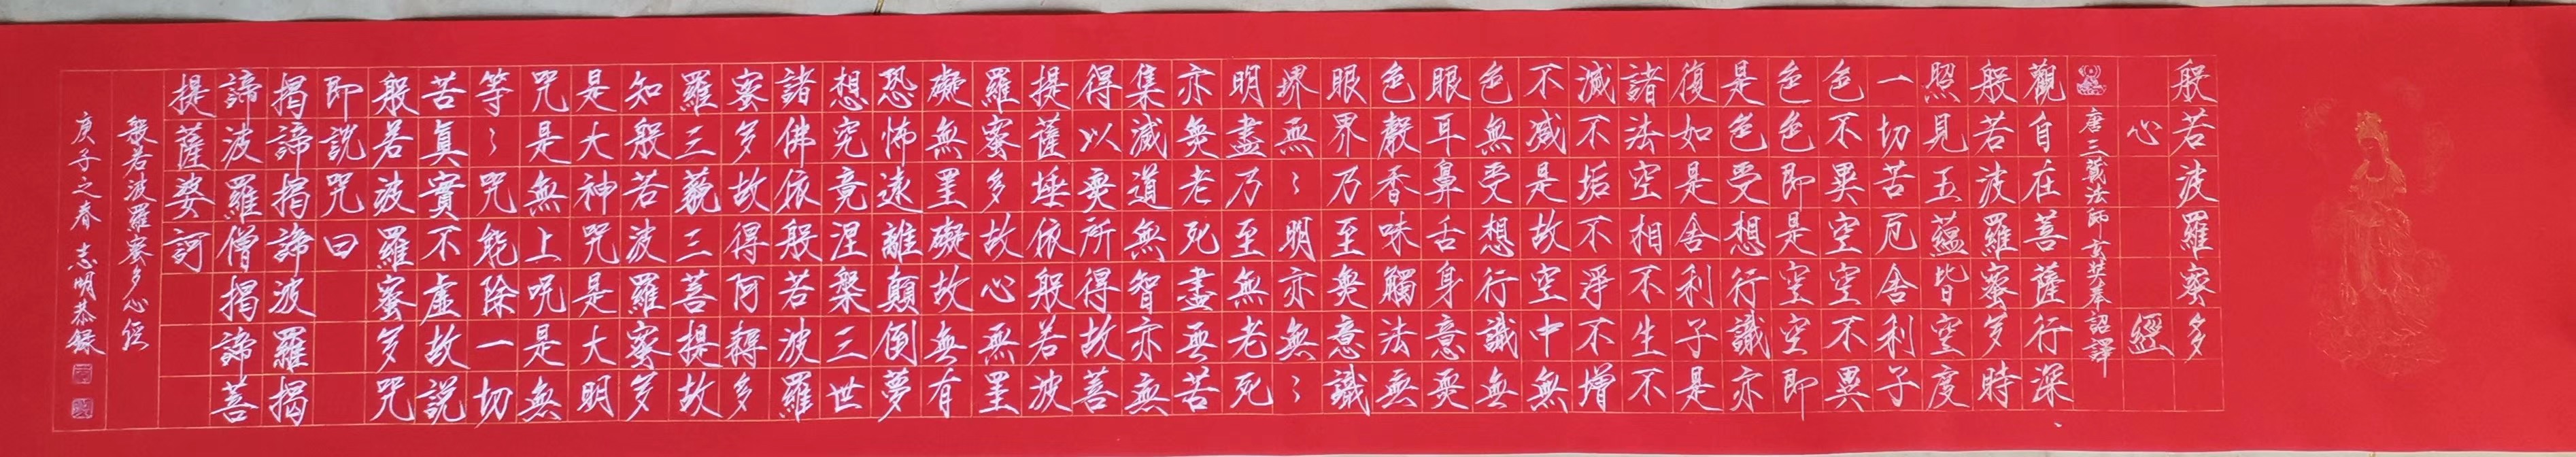 般若波羅蜜多
心經
唐三藏法師玄奘奉詔譯
觀自在菩薩行深
般若波羅蜜多時
照見五蘊皆空度
一切苦厄舍利子
色不異空空不異
色色即是空空即
是色受想行識亦
復如是舍利子是
諸法空相不生不
滅不垢不淨不增
不減是故空中無
色無受想行識無
眼耳鼻舌身意無
色聲香味觸法無
眼界乃至無意識
界無〻明亦無〻
明盡乃至無老死
亦無老死盡無苦
集滅道無智亦無
得以無所得故菩
提薩埵依般若波
羅蜜多故心無罣
礙無罣礙故無有
恐怖遠離顛倒夢
想究竟涅槃三世
諸佛依般若波羅
蜜多故得阿耨多
羅三藐三菩提故
知般若波羅蜜多
是大神咒是大明
咒是無上咒是無
等〻咒能除一切
苦真實不虛故說
般若波羅蜜多咒
即說咒曰
揭諦揭諦波羅揭
諦波羅僧揭諦菩
提薩婆訶
般若波羅蜜多心經
庚子之春 志明恭錄